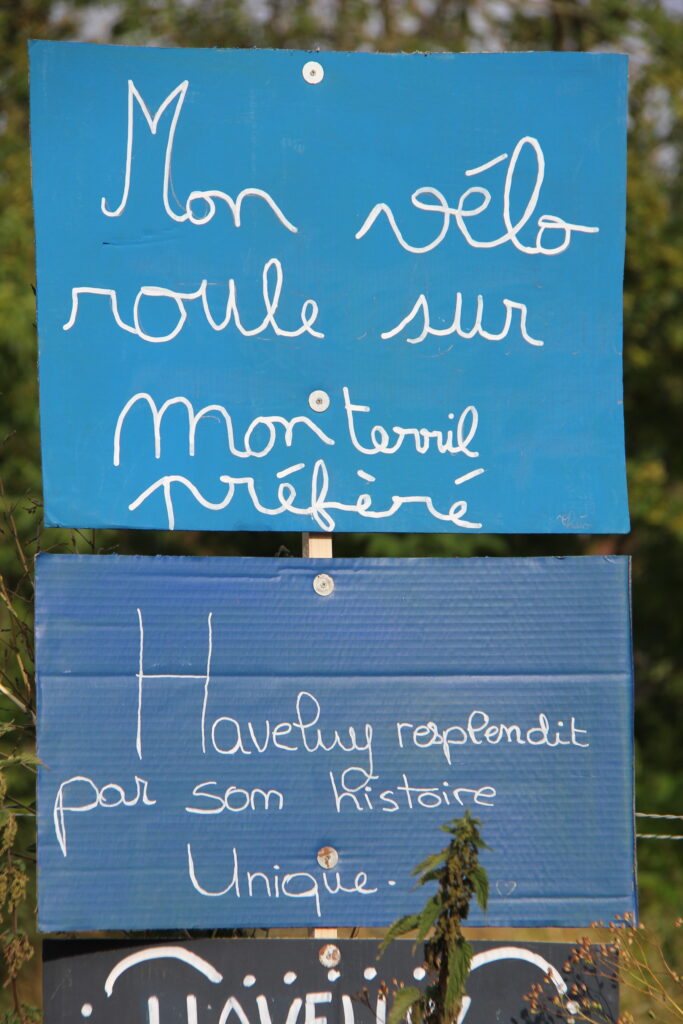 Mon vélo
roule sur
mon terril
préféré
Théo
Haveluy resplendit
par som histoire
Unique.
HAVELUY